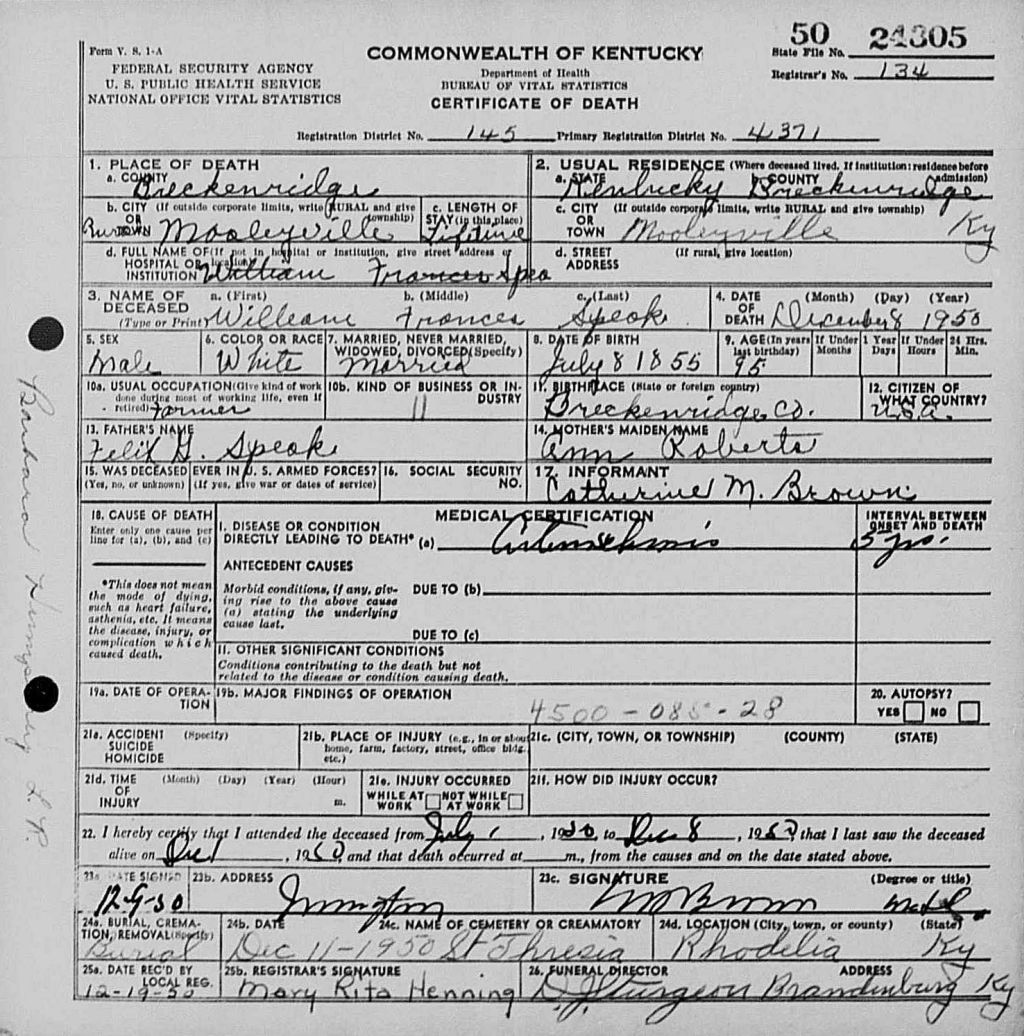 50 24305
Form V. S. 1-A
COMMONWEALTH OF KENTUCKY
State File No.
FEDERAL SECURITY AGENCY
Department of Health
Registrar's No. 134
U. S. PUBLIC HEALTH SERVICE
BUREAU OF VITAL STATISTICS
NATIONAL OFFICE VITAL STATISTICS
CERTIFICATE OF DEATH
Registration District No. 145 Primary Registration District No. 4371
1. PLACE OF DEATH
a. COUNTY Breckenridge
2. USUAL RESIDENCE (Where deceased lived. If institution: residence before admission)
a. STATE Kentucky COUNTY Breckenridge
b. CITY (If outside corporate limits, write RURAL and give township)
OR
TOWN Mooleyville
c. LENGTH OF STAY (in this place) Lifetime
c. CITY (If outside corporate limits, write RURAL and give township)
OR
TOWN Mooleyville Ky
d. FULL NAME OF (If not in hospital or institution, give street address or location)
HOSPITAL OR
INSTITUTION William Frances Spea
d. STREET ADDRESS (If rural, give location)
3. NAME OF DECEASED (Type or Print)
a. (First) b. (Middle) c. (Last)
William Frances Speak
4. DATE OF DEATH (Month) (Day) (Year)
December 8 1950
5. SEX
Male
6. COLOR OR RACE
White
7. MARRIED, NEVER MARRIED, WIDOWED, DIVORCED (Specify)
Married
8. DATE OF BIRTH
July 8 1855
9. AGE (In years last birthday) If Under 1 Year Months Days If Under 24 Hrs. Hours Min.
95
10a. USUAL OCCUPATION (Give kind of work done during most of working life, even if retired) Farmer
10b. KIND OF BUSINESS OR INDUSTRY
11
11. BIRTHPLACE (State or foreign country)
Breckenridge Co.
12. CITIZEN OF WHAT COUNTRY?
U.S.A.
13. FATHER'S NAME
Felix G. Speak
14. MOTHER'S MAIDEN NAME
Ann Roberts
15. WAS DECEASED EVER IN U. S. ARMED FORCES?
(Yes, no, or unknown) (If yes, give war or dates of service)
16. SOCIAL SECURITY NO.
17. INFORMANT
Catherine M. Brown
18. CAUSE OF DEATH
Enter only one cause per line for (a), (b), and (c)
MEDICAL CERTIFICATION
INTERVAL BETWEEN ONSET AND DEATH
I. DISEASE OR CONDITION
DIRECTLY LEADING TO DEATH* (a) 5 yrs.
*This does not mean the mode of dying, such as heart failure, asthenia, etc. It means the disease, injury, or complication which caused death.
ANTECEDENT CAUSES
Morbid conditions, if any, giving rise to the above cause (a) stating the underlying cause last.
DUE TO (b)
DUE TO (c)
II. OTHER SIGNIFICANT CONDITIONS
Conditions contributing to the death but not related to the disease or condition causing death.
19a. DATE OF OPERATION
19b. MAJOR FINDINGS OF OPERATION
4500-085-28
20. AUTOPSY?
YES NO
21a. ACCIDENT (Specify)
SUICIDE
HOMICIDE
21b. PLACE OF INJURY (e.g., in or about home, farm, factory, street, office bldg. etc.)
21c. (CITY, TOWN, OR TOWNSHIP) (COUNTY) (STATE)
21d. TIME OF INJURY (Month) (Day) (Year) (Hour) m.
21e. INJURY OCCURRED
WHILE AT WORK NOT WHILE AT WORK
21f. HOW DID INJURY OCCUR?
22. I hereby certify that I attended the deceased from July 1, 1950, to Dec 8, 1950, that I last saw the deceased
alive on Dec 1, 1950, and that death occurred at m., from the causes and on the date stated above.
23a. DATE SIGNED
12-9-50
23b. ADDRESS
Irvington
23c. SIGNATURE (Degree or title)
Brown
24a. BURIAL, CREMATION, REMOVAL (Specify)
Burial
24b. DATE
Dec 11-1950
24c. NAME OF CEMETERY OR CREAMATORY
St Thresia
24d. LOCATION (City, town, or county) (State)
Rhodelia Ky
25a. DATE REC'D BY LOCAL REG.
12-19-50
25b. REGISTRAR'S SIGNATURE
Mary Rita Henning
26. FUNERAL DIRECTOR ADDRESS
D. J. Sturgeon Brandenburg Ky
Barbara L. R.